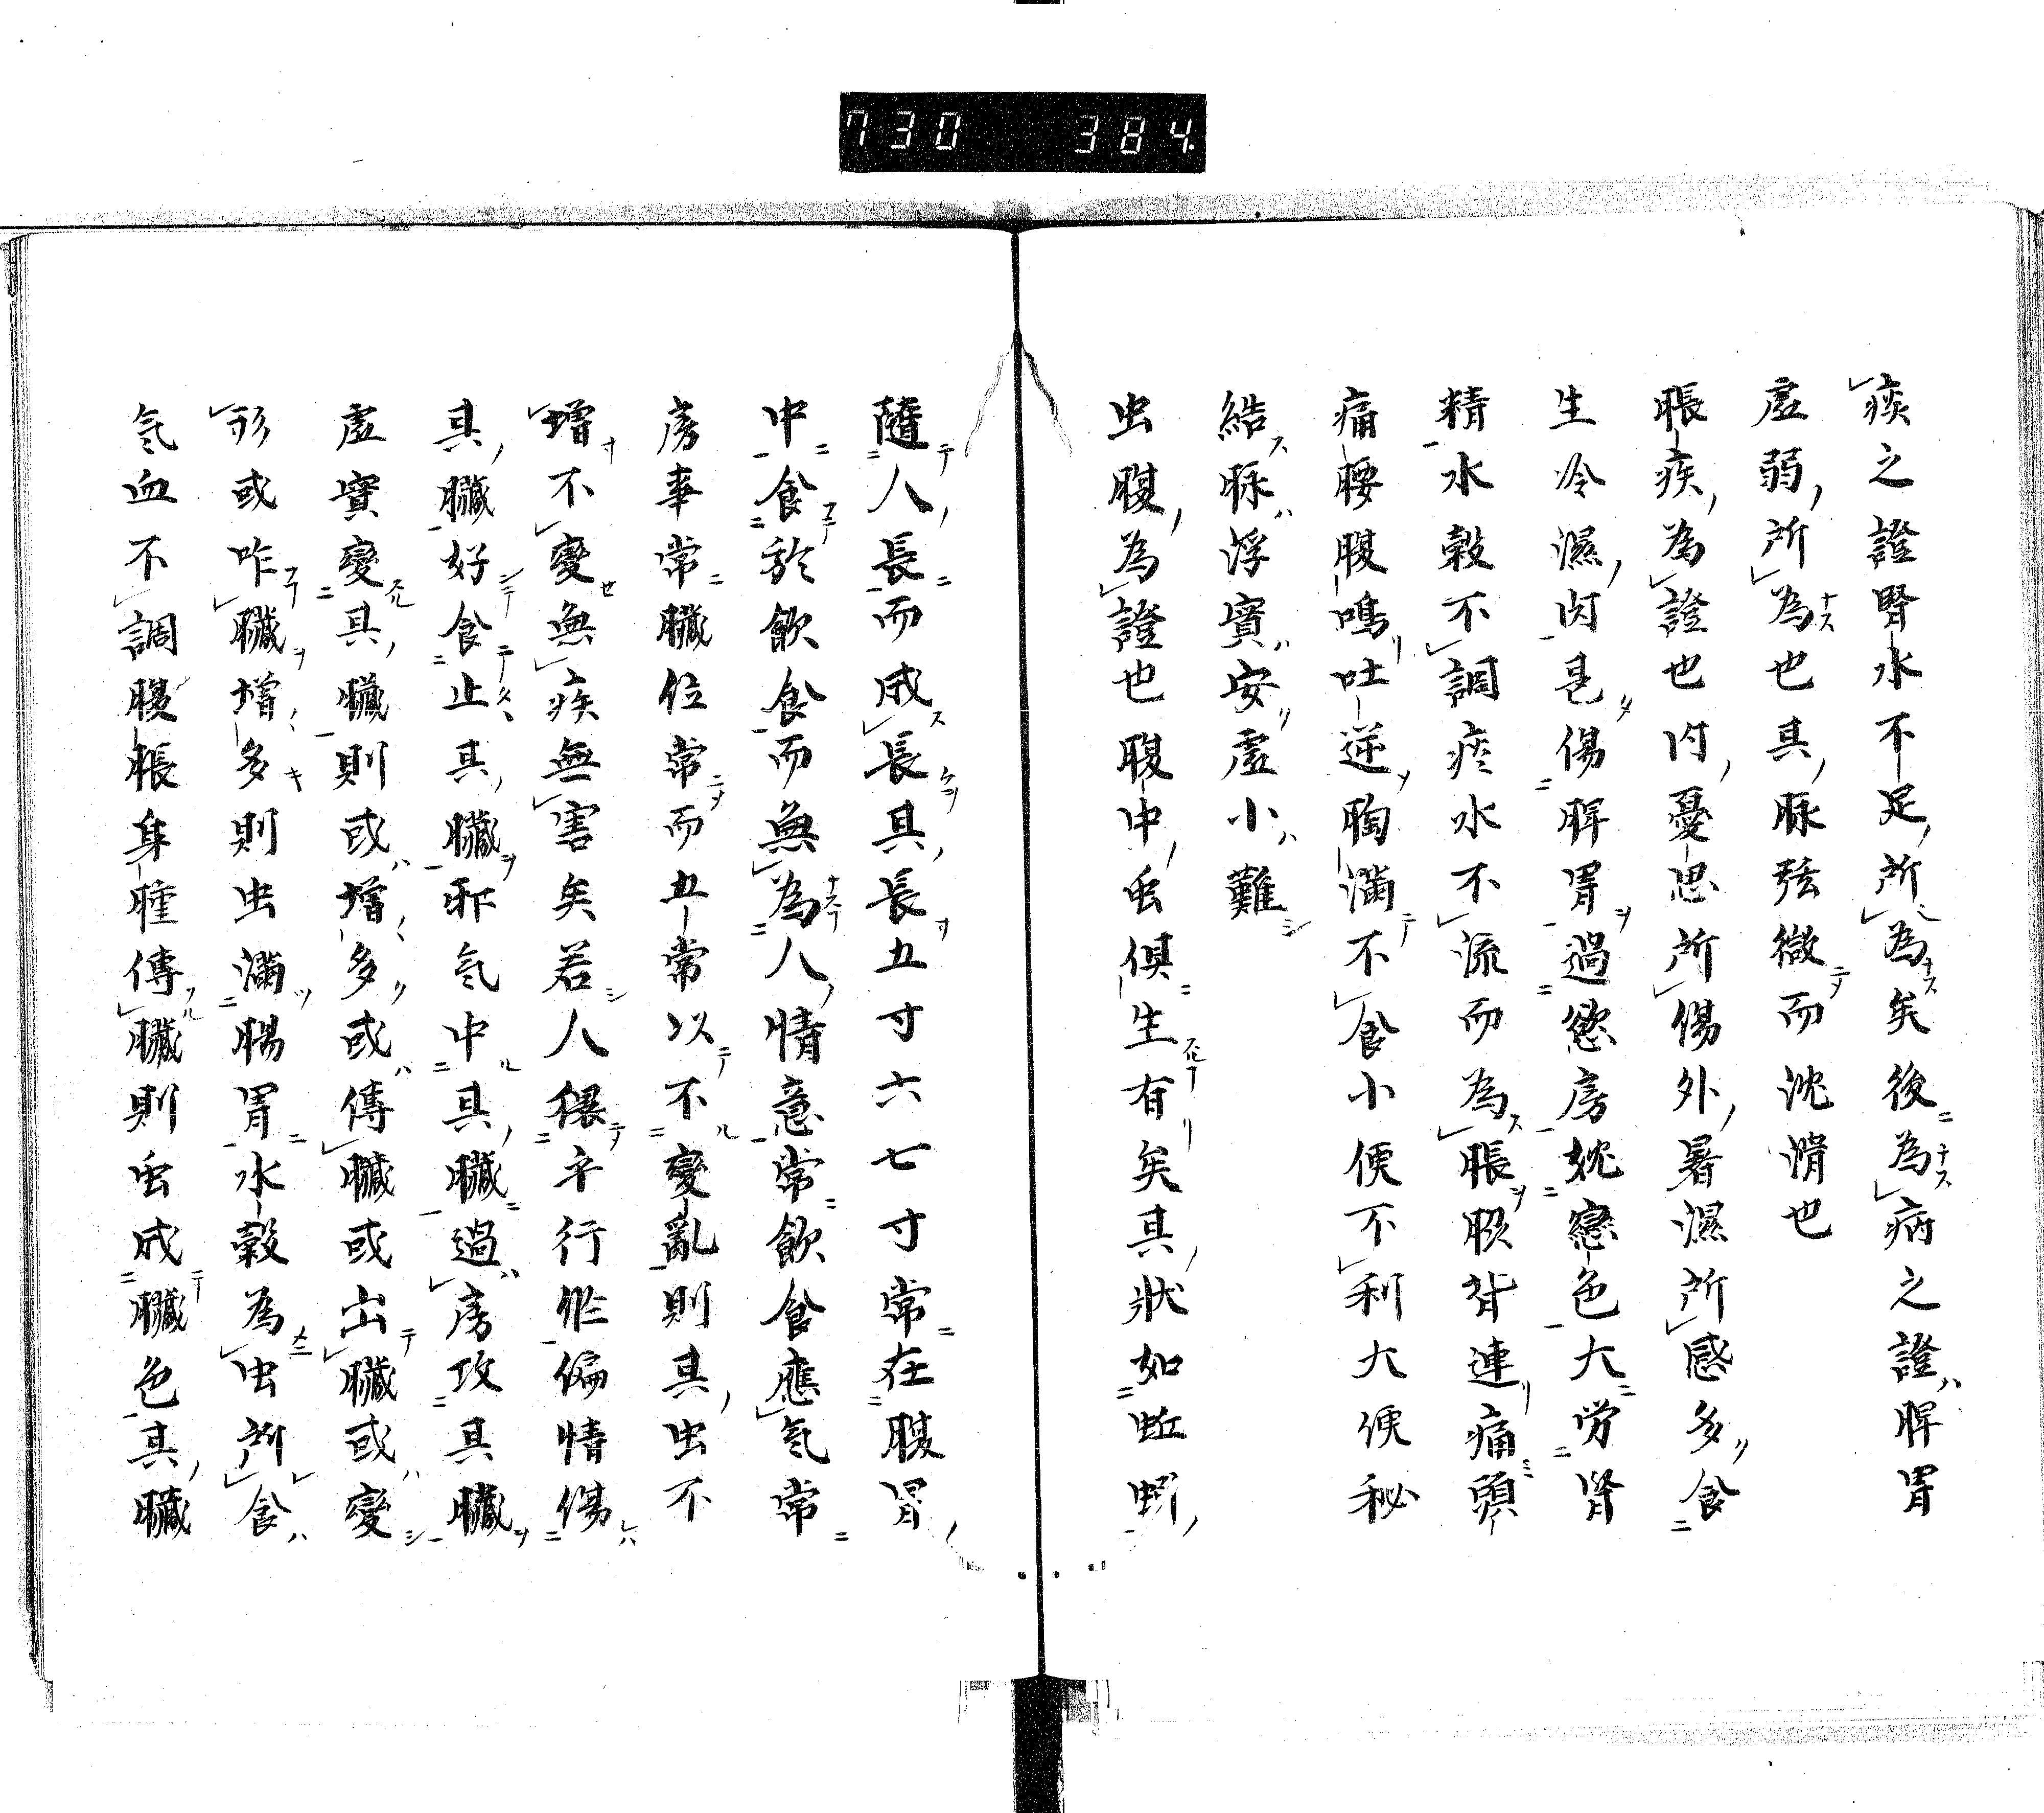 730 384.
痰之證腎水不足所為矣後為病之證脾胃
虛弱所為也其脉弦微而沈滑也
脹疾為證也内憂思所傷外暑濕所感多食
生冷濕肉是傷脾胃過慾房耽戀色大労腎
精水穀不調痰水不流而為脹腹背連痛頭
痛腰腹鳴吐逆胸満不食小便不利大便秘
結脉浮實安虛小難
虫腹為證也腹中虫俱生有矣其状如蚯蚓
隨人長而成長其長五寸六七寸常在腹胃
中食於飲食而無為人情意常飲食應気常
房事常臓位常而五常以不變亂則其虫不
增不變無疾無害矣若人優辛行作偏情傷
其臓好食止其臓邪気中其臓過房攻其臓
虛實變其臓則或增多或傳臓或出臓或變
形或咋臓增多則虫滿腸胃水穀為虫所食
気血不調腹脹身腫傳臓則虫成臓色其臓